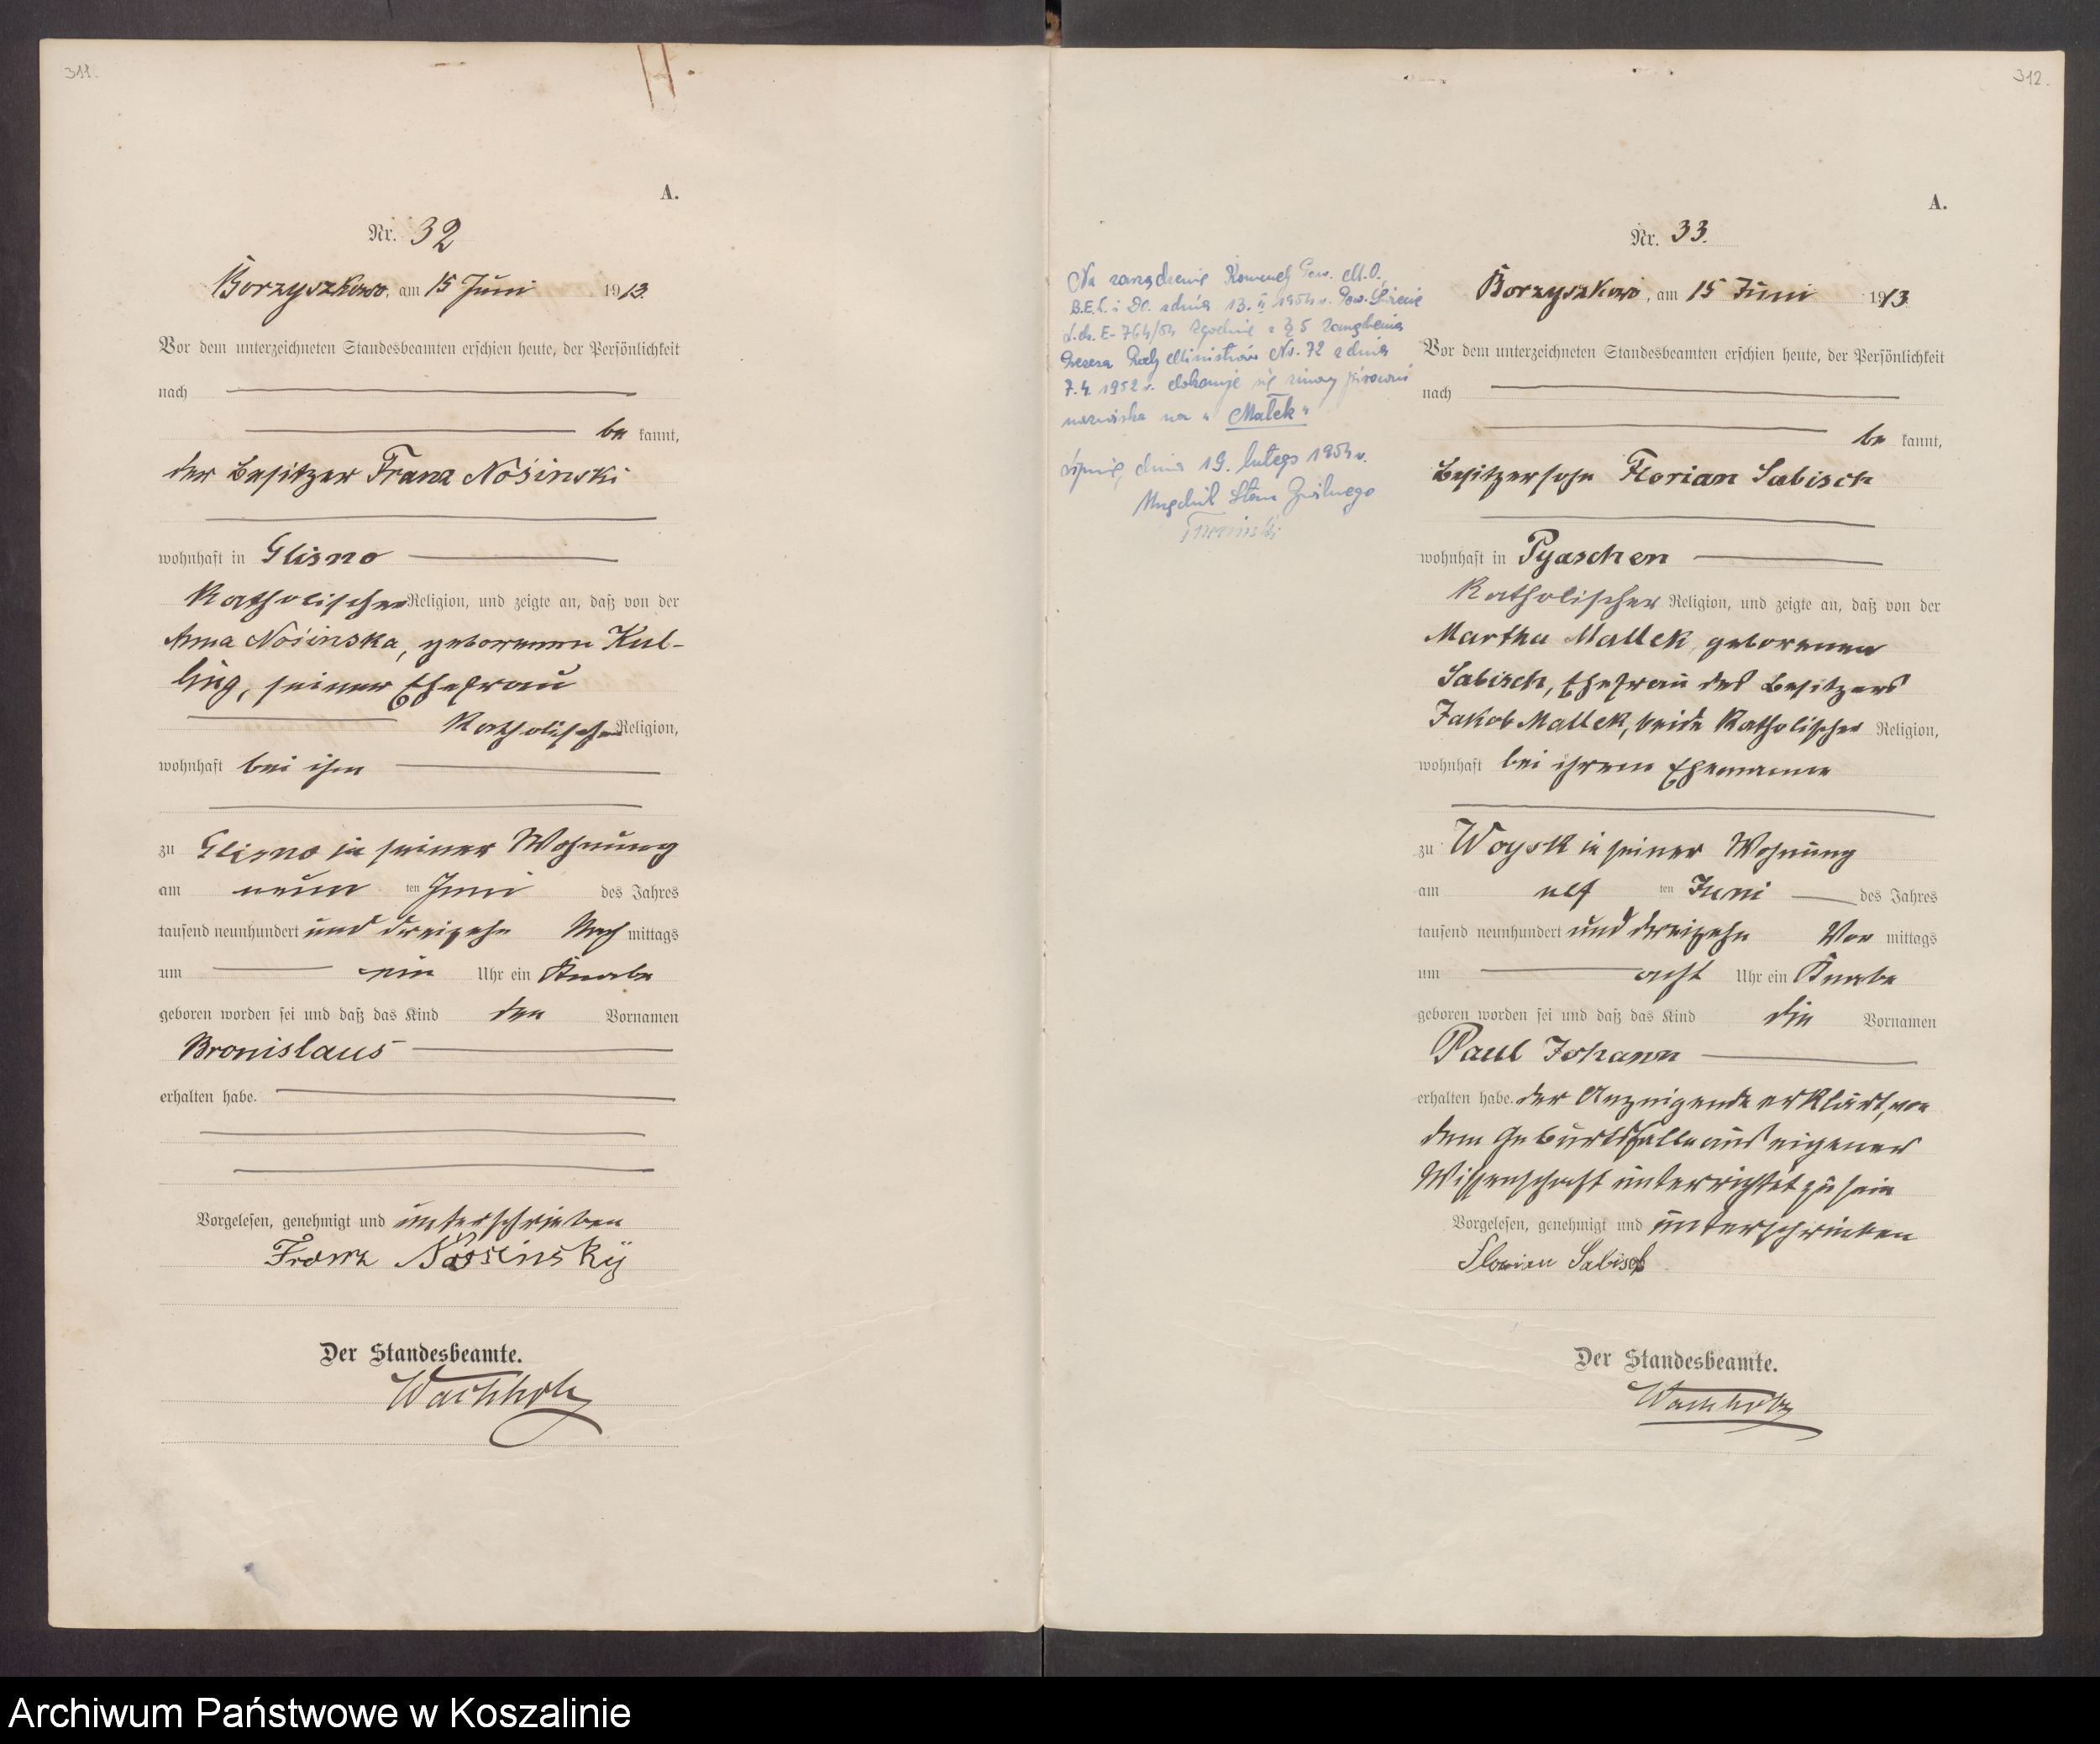 311.
A.
Nr. 32
Borzyszkowo, am 15 Juni 1913.
Vor dem unterzeichneten Standesbeamten erschien heute, der Persönlichkeit
nach
be kannt,
der Besitzer Franz Nosinski
wohnhaft in Glisno
Katholischer Religion, und zeigte an, daß von der
Anna Nosinska, geborenen Kul-
ling, seiner Ehefrau
Katholischer Religion,
wohnhaft bei ihm
zu Glisno in seiner Wohnung
am neun ten Juni des Jahres
tausend neunhundert und dreizehn Nach mittags
um ein Uhr ein Knabe
geboren worden sei und daß das Kind den Vornamen
Bronislaus
erhalten habe.
Vorgelesen, genehmigt und unterschrieben
Franz
Der Standesbeamte.
Wachholz
312.
A.
Nr. 33.
Na zarządzenie Komendy Pow. M.O.
B.E.L. i D.O. z dnia 13. II 1954 r.
L.dz. E-764/54 zgodnie z § 5 zarządzenia
Prezesa Rady Ministrów No. 72 z dnia
7.4.1952 r. dokonuje się zmiany pisowni
nazwiska na "Małek"
Lipnie, dnia 19. lutego 1954 r.
Urzędnik Stanu Cywilnego
Borzyszkowo, am 15 Juni 1913
Vor dem unterzeichneten Standesbeamten erschien heute, der Persönlichkeit
nach
be kannt,
Besitzersohn Florian Sabisch
wohnhaft in Pyaschen
Katholischer Religion, und zeigte an, daß von der
Martha Mallek geborenen
Sabisch, Ehefrau des Besitzers
Jakob Mallek, beide Katholischer Religion,
wohnhaft bei ihrem Ehemanne
zu Woysk in seiner Wohnung
am elf ten Juni des Jahres
tausend neunhundert und dreizehn Vor mittags
um acht Uhr ein Knabe
geboren worden sei und daß das Kind die Vornamen
Paul Johann
erhalten habe. der Anzeigende erklärt, von
dem Geburtsfalle aus eigener
Wissenschaft unterrichtet zu sein
Vorgelesen, genehmigt und unterschrieben
Florian Sabisch
Der Standesbeamte.
Wachholz
Archiwum Państwowe w Koszalinie